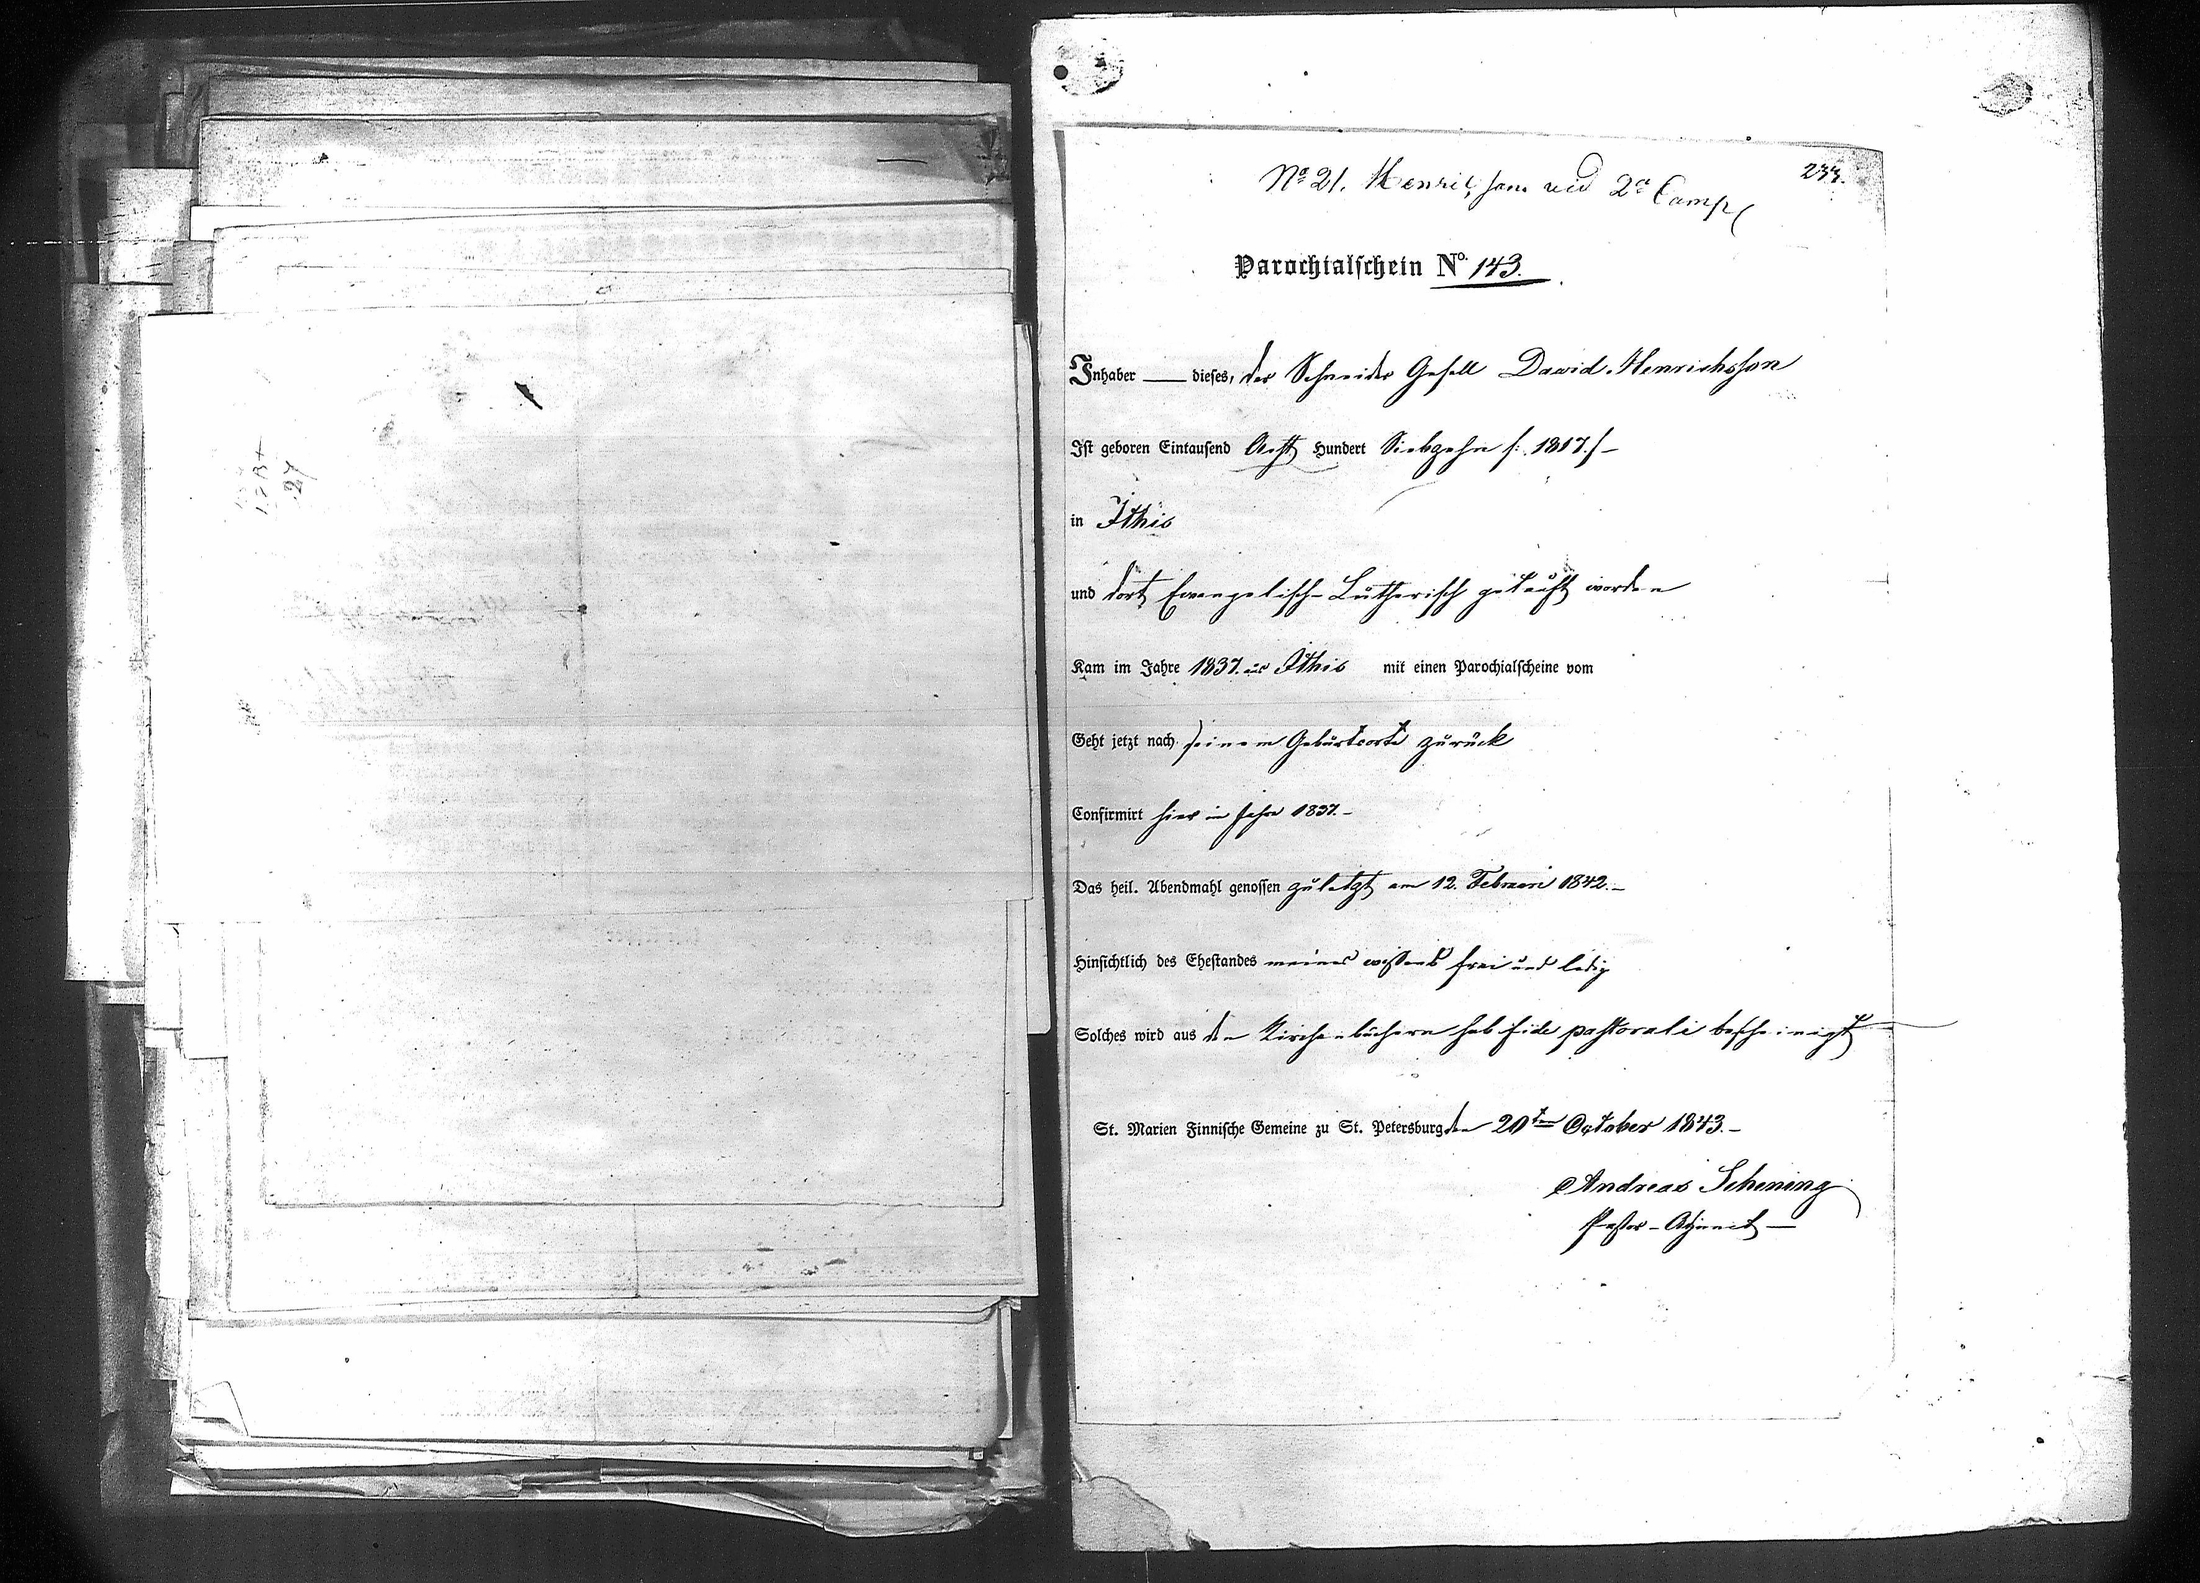 233.
No 21. Henrichson vid 2a Comp
Parochialschein No. 143.
Inhaber — dieses, der Schneider Gesell David Henrichsson
Ist geboren Eintausend Acht Hundert Siebzehn /: 1817 /-
in Ithis
und dort Evangelisch-Lutherisch getauft worden
Kam im Jahre 1837. aus Ithis mit einen Parochialscheine vom
Geht jetzt nach seinem Geburtsorte zurück
Confirmirt hier im Jahre 1837.-
Das heil. Abendmahl genossen zuletzt am 12. Februari 1842.-
Hinsichtlich des Ehestandes meines wissens frei und ledig
Solches wird aus den Kirchenbüchern sub fide pastorali bescheinigt
St. Marien Finnische Gemeine zu St. Petersburg den 20ten October 1843.-
Andreas Schening
Pastor-Adjunct-